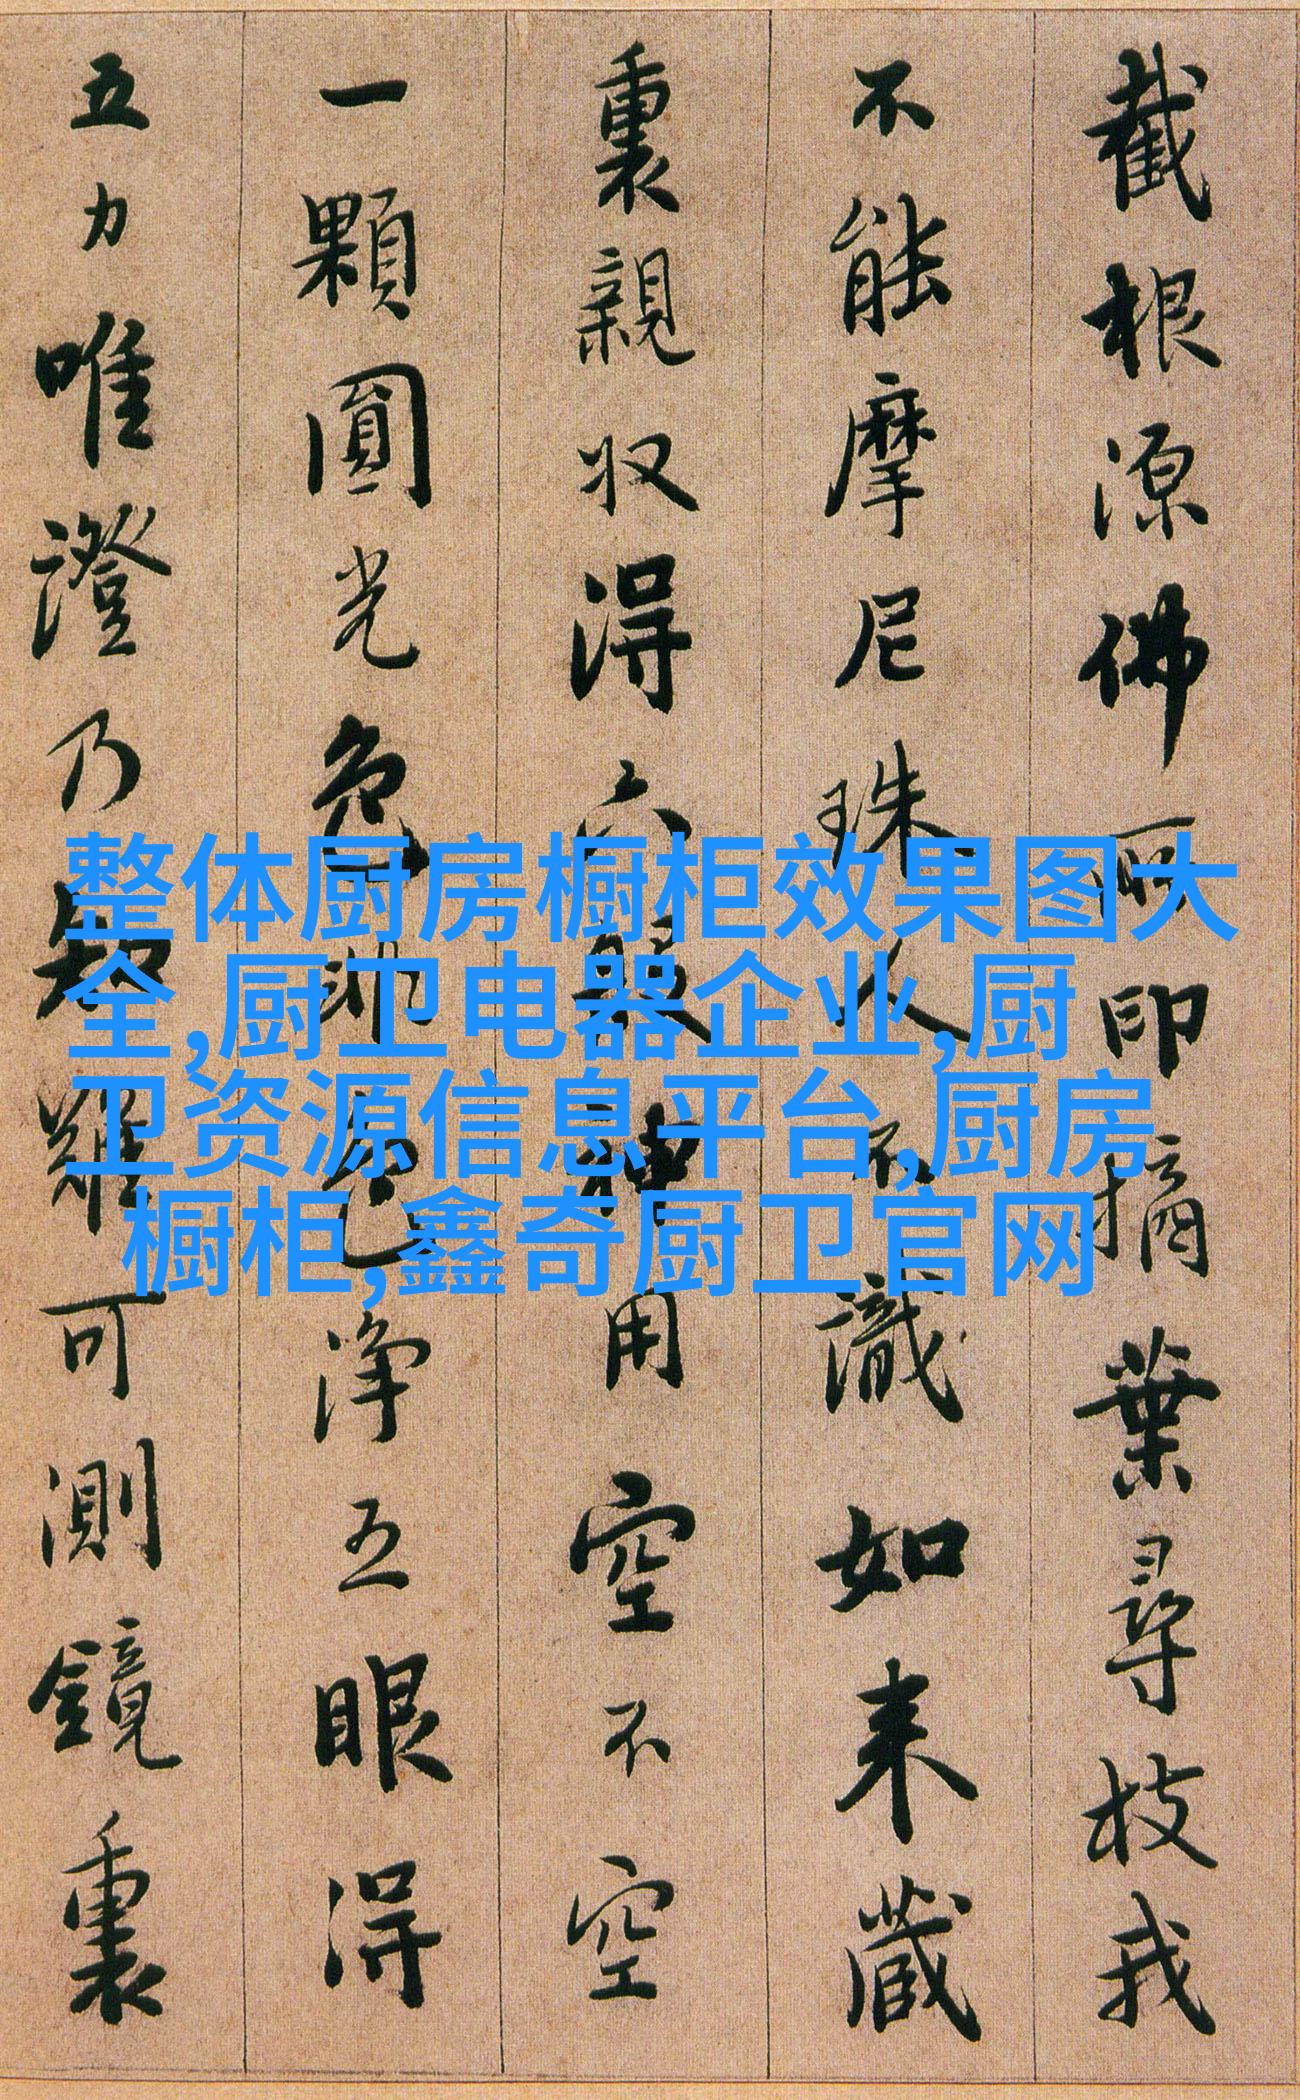 截根源佛所印摘葉尋枝我
不能摩尼珠人不識如来藏
裏親収得六般神用空不空
一顆圓光色非色淨五眼得
五力唯證乃知難可測鏡裏
整体厨房橱柜效果图大
全,厨卫电器企业,厨
卫资源信息平台,厨房
橱柜,鑫奇厨卫官网